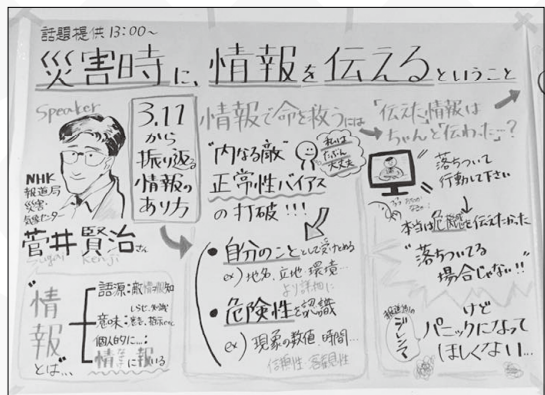 話題提供 13:00〜
災害時に、情報を伝えるということ
Speaker
NHK
報道局
災害・
気象センター
菅井賢治さん
Sugai Kenji
3.11
から
振り返る
情報の
あり方
"情報"とは…
語源：敵情の報知
意味：
個人的に…：
情に報いる
情報で命を救うには
"内なる敵"
正常性バイアス
の打破!!!
私は
たぶん
大丈夫
・自分のこととして受けとめる
ex) 地名、立地環境…
より詳細に
・危険性を認識
ex) 現象の数値 時間…
信頼性・客観性
「伝えた」情報は
ちゃんと「伝わった」…?
落ちついて
行動して下さい
本当は危機感を伝えたかった
"落ちついてる
場合じゃない!!"
報道側の
ジレンマ
けど
パニックになって
ほしくない…